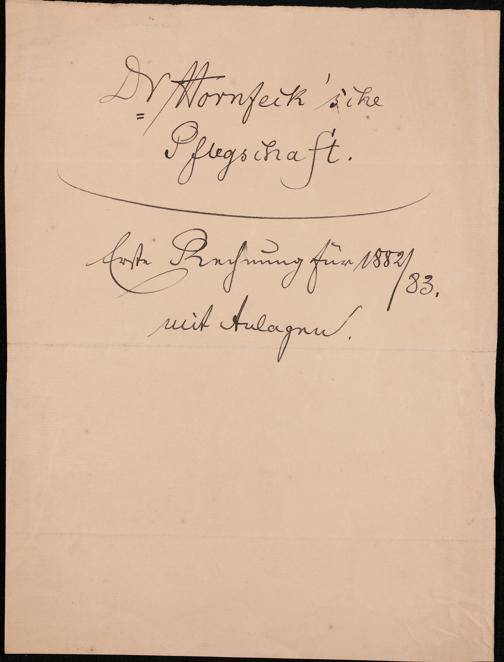 Dr Hornfeck'sche
Pflegschaft.
Erste Rechnung für 1882/83.
mit Anlagen.